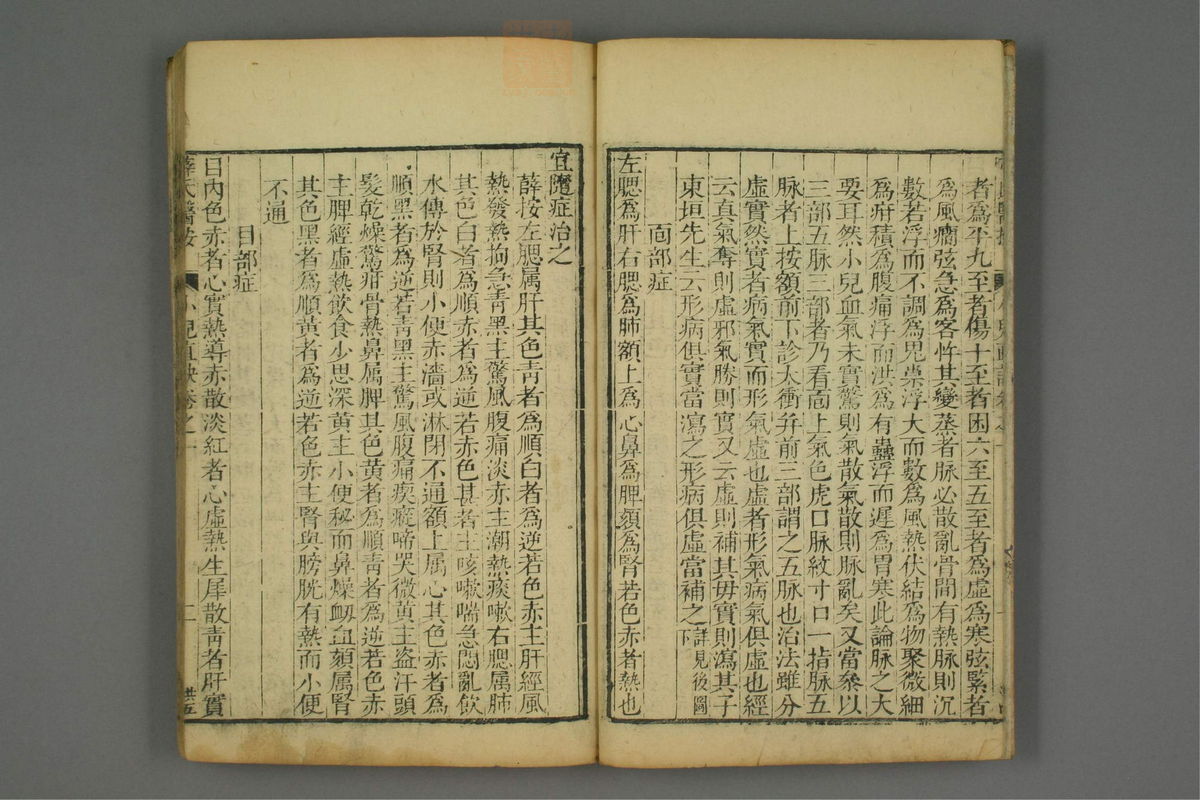 者為平九至者傷十至者困六至五至者為虛為寒弦緊者
為風癇弦急為客忤其變蒸者脉必散亂骨間有熱脉則沉
數若浮而不調為鬼祟浮大而數為風熱伏結為物聚微細
為疳積為腹痛浮而洪為有蟲浮而遲為胃寒此論脉之大
要耳然小兒血氣未實驚則氣散氣散則脉亂矣又當參以
三部五脉三部者乃看靣上氣色虎口脉紋寸口一指脉五
脉者上按額前下診太衝幷前三部謂之五脉也治法雖分
虛實然實者病氣實而形氣虛也虛者形氣病氣俱虛也經
云真氣奪則虛邪氣勝則實又云虛則補其毋實則瀉其子
東垣先生云形病俱實當瀉之形病俱虛當補之詳見後圖下
靣部症
左腮為肝右腮為肺額上為心鼻為脾頦為腎若色赤者熱也
宜隨症治之
薛按左腮属肝其色青者為順白者為逆若色赤主肝經風
熱發熱拘急青黑主驚風腹痛淡赤主潮熱痰嗽右腮属肺
其色白者為順赤者為逆若赤色甚者主咳嗽喘急悶亂飲
水傳於腎則小便赤濇或淋閉不通額上属心其色赤者為
順黑者為逆若青黑主驚風腹痛瘈瘲啼哭微黄主盗汗頭
髮乾燥驚疳骨熱鼻属脾其色黄者為順青者為逆若色赤
主脾經虛熱飲食少思深黄主小便秘而鼻燥衂血頦属腎
其色黑者為順黄者為逆若色赤主腎與膀胱有熱而小便
不通
目部症
目內色赤者心實熱導赤散淡紅者心虛熱生犀散青者肝實
薛氏醫按
小兒直訣卷之一
二